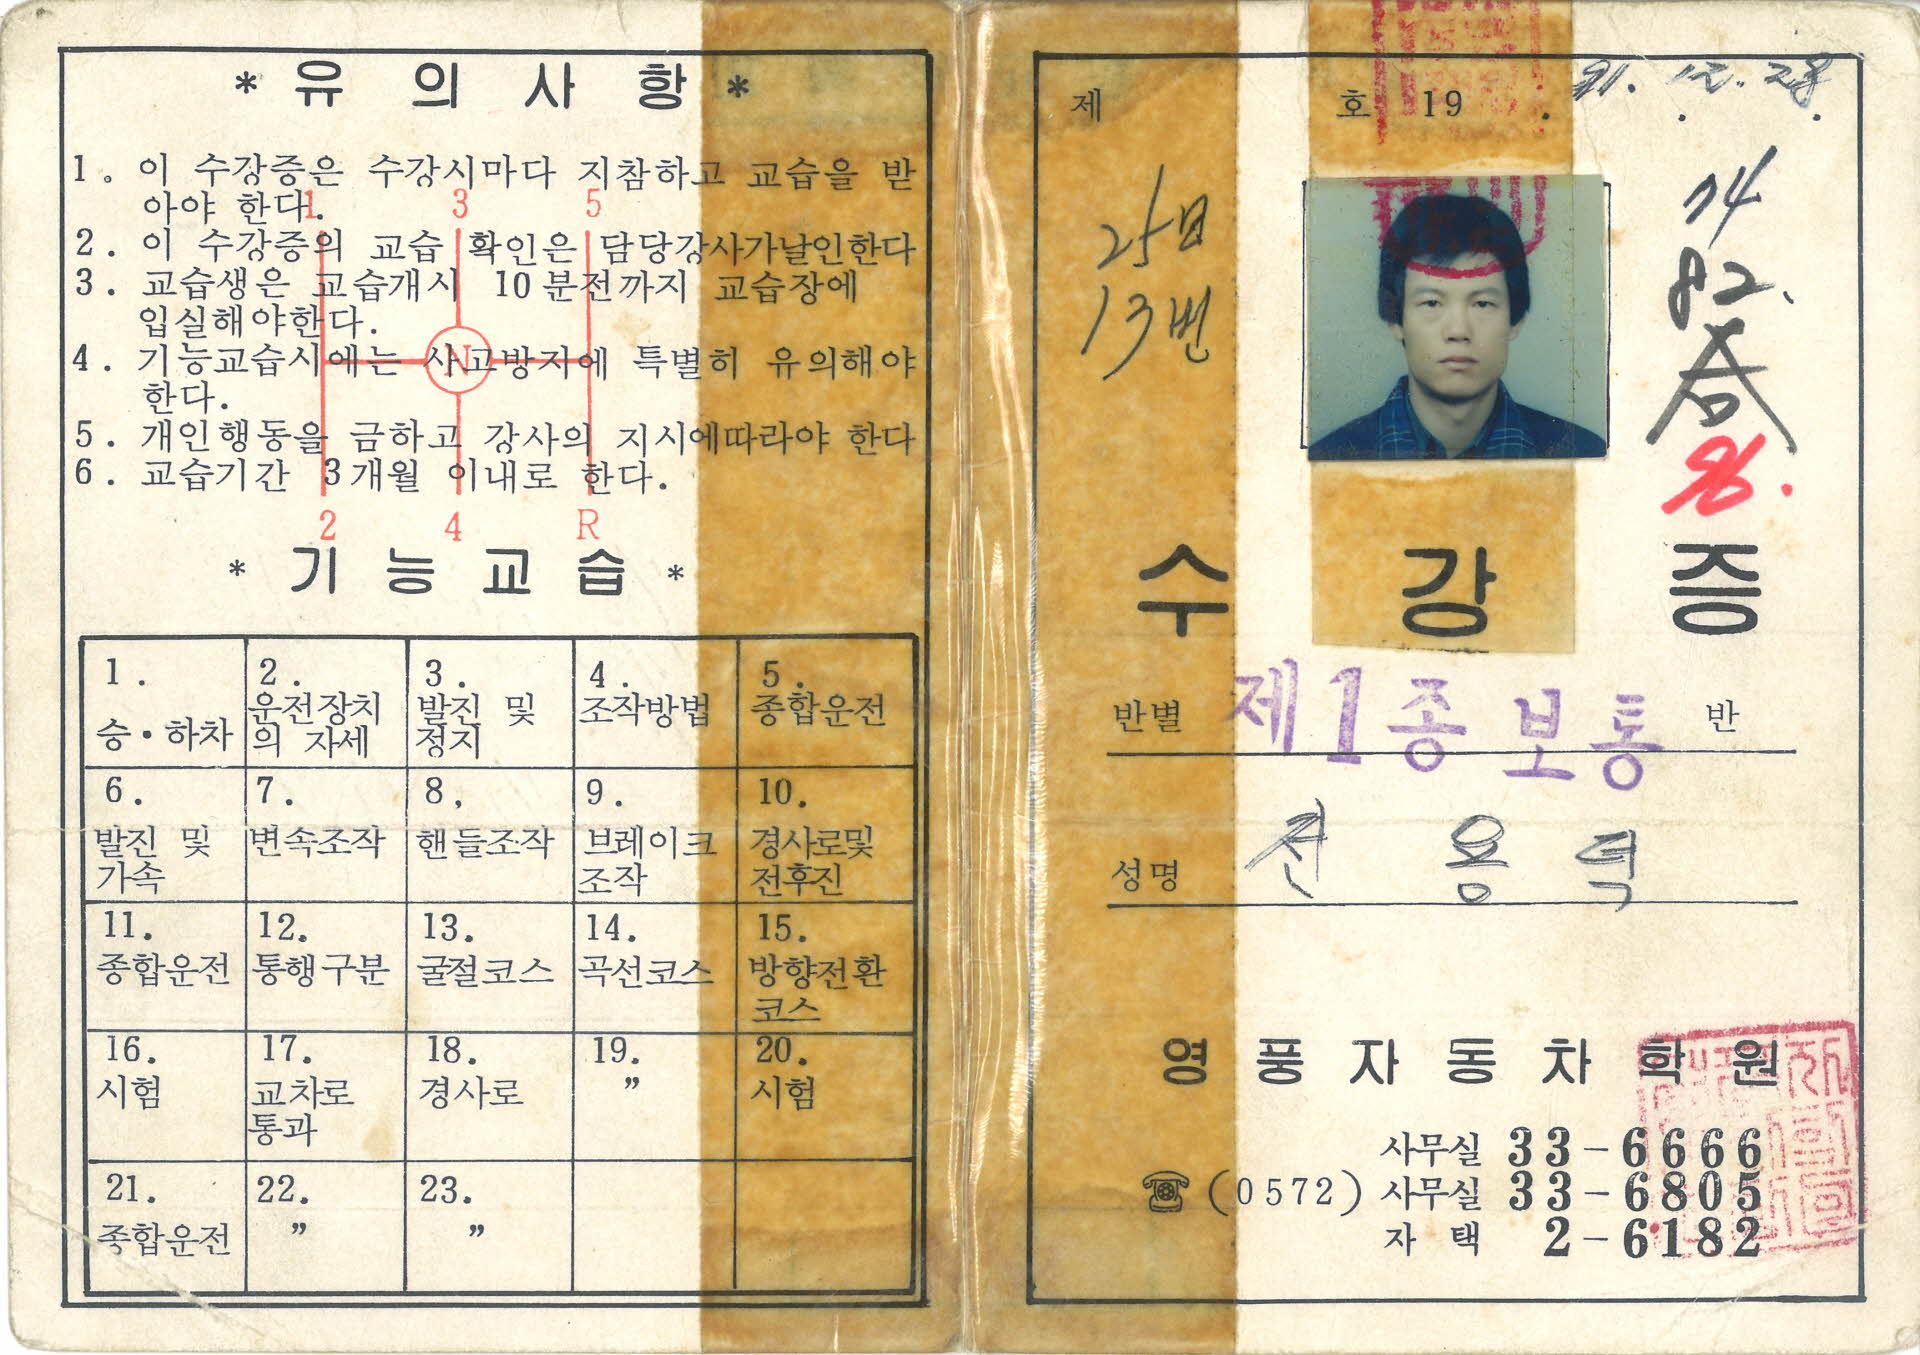 * 유 의 사 항 *
1. 이 수강증은 수강시마다 지참하고 교습을 받
아야 한다.
2. 이 수강증의 교습 확인은 담당강사가날인한다
3. 교습생은 교습개시 10분전까지 교습장에
입실해야한다.
4. 기능교습시에는 사고방지에 특별히 유의해야
한다.
5. 개인행동을 금하고 강사의 지시에따라야 한다
6. 교습기간 3개월 이내로 한다.
1 3 5
N
2 4 R
* 기 능 교 습 *
1. 승·하차
2. 운전장치의 자세
3. 발진 및 정지
4. 조작방법
5. 종합운전
6. 발진 및 가속
7. 변속조작
8, 핸들조작
9. 브레이크 조작
10. 경사로및 전후진
11. 종합운전
12. 통행구분
13. 굴절코스
14. 곡선코스
15. 방향전환 코스
16. 시험
17. 교차로 통과
18. 경사로
19. 〃
20. 시험
21. 종합운전
22. 〃
23. 〃
제 호 19 . . .
91. 12. 28
25日
13번
74
82.
96.
수 강 증
반별 제1종보통 반
성명 전용덕
영 풍 자 동 차 학 원
사무실 33-6666
☎(0572) 사무실 33-6805
자 택 2-6182